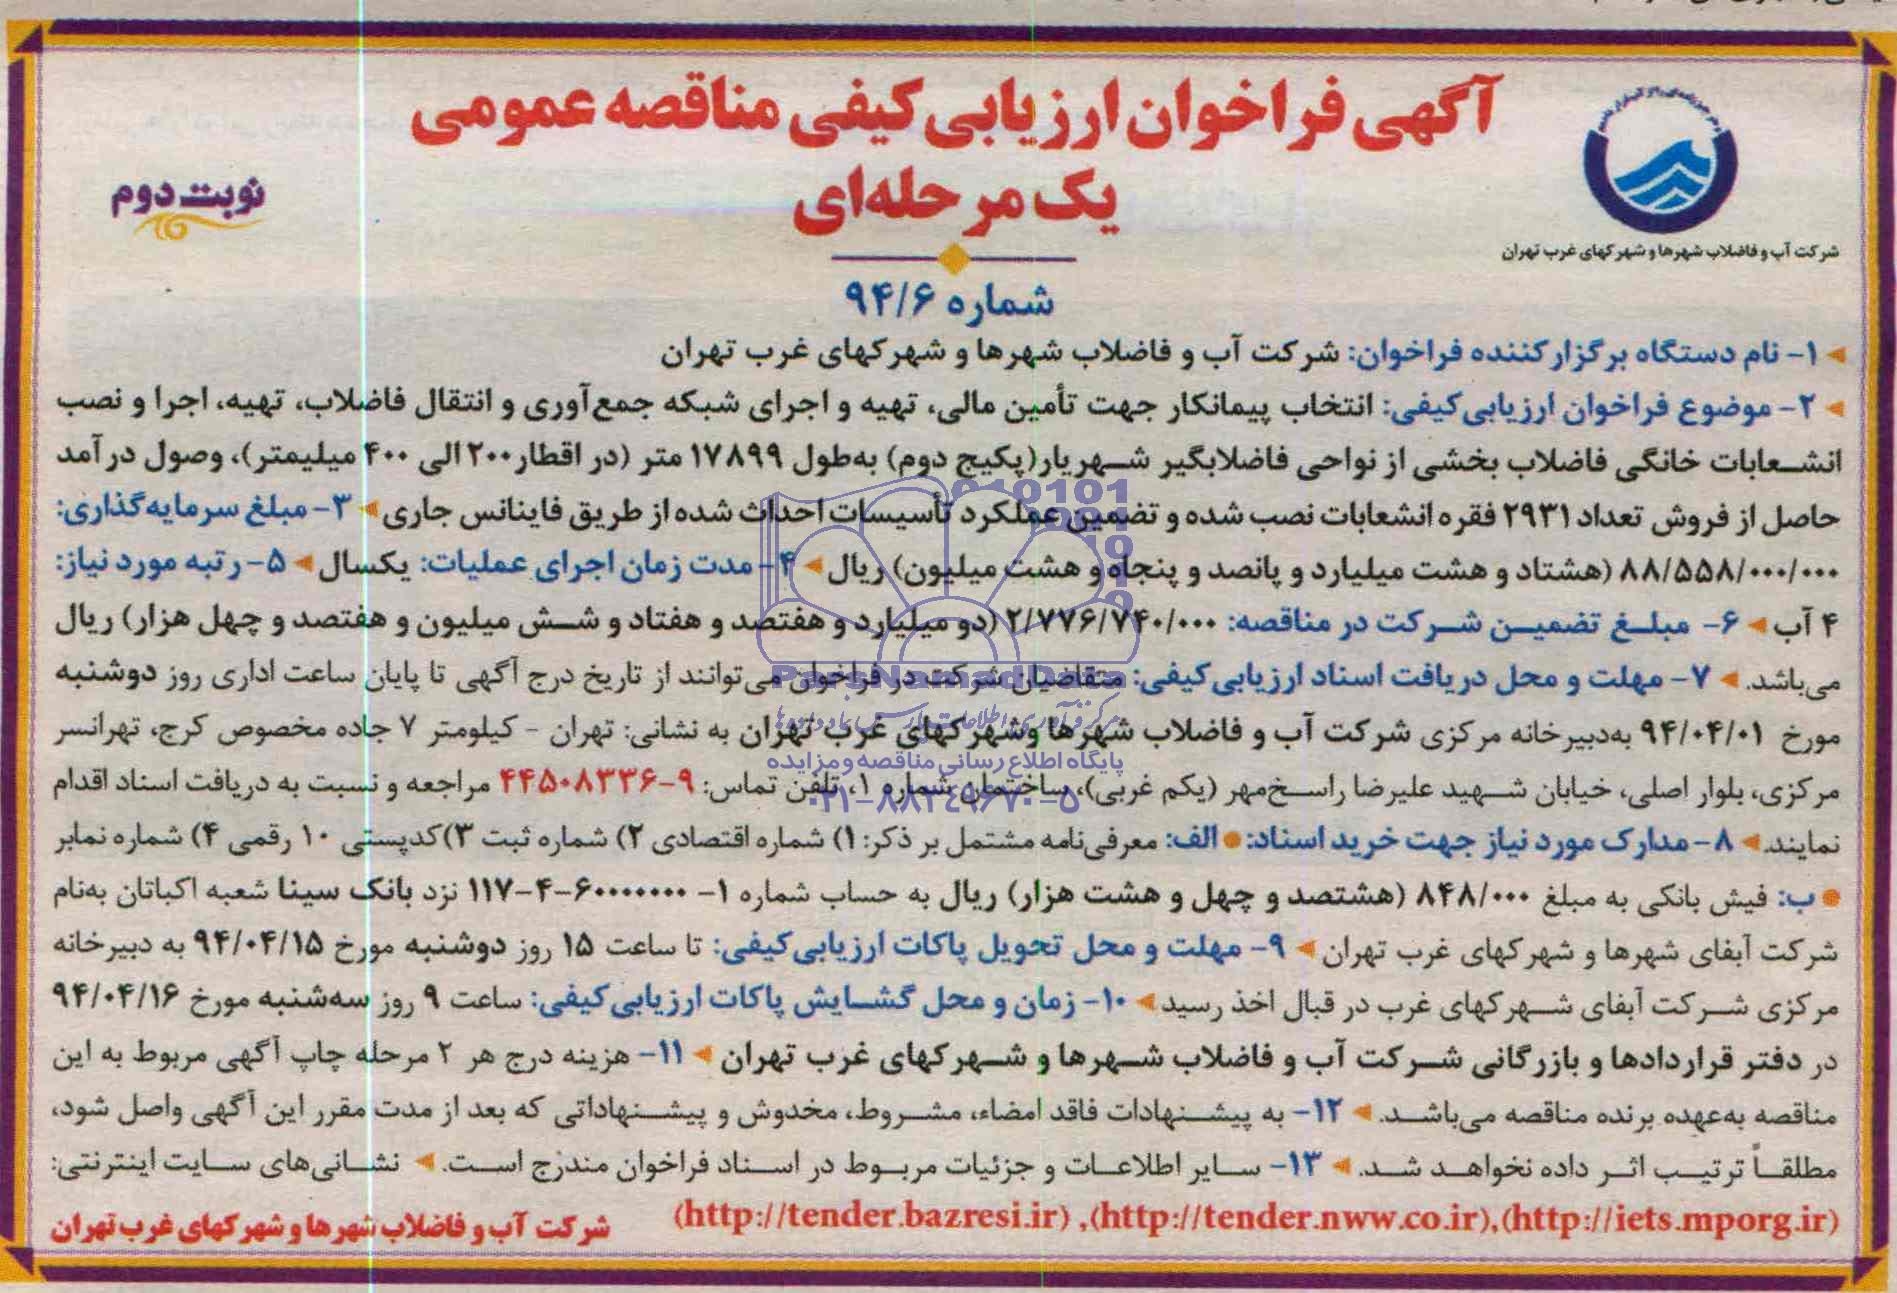 آگهی فراخوان ارزیابی کیفی مناقصه عمومی
یک مرحله‌ای
نوبت دوم
شرکت آب و فاضلاب شهرها و شهرکهای غرب تهران
شماره ۹۴/۶
۱- نام دستگاه برگزارکننده فراخوان: شرکت آب و فاضلاب شهرها و شهرکهای غرب تهران
۲- موضوع فراخوان ارزیابی‌کیفی: انتخاب پیمانکار جهت تأمین مالی، تهیه و اجرای شبکه جمع‌آوری و انتقال فاضلاب، تهیه، اجرا و نصب
انشعابات خانگی فاضلاب بخشی از نواحی فاضلابگیر شهریار(پکیج دوم) به‌طول ۱۷۸۹۹ متر (در اقطار ۲۰۰ الی ۴۰۰ میلیمتر)، وصول درآمد
حاصل از فروش تعداد ۲۹۳۱ فقره انشعابات نصب شده و تضمین عملکرد تأسیسات احداث شده از طریق فاینانس جاری ۳- مبلغ سرمایه‌گذاری:
۸۸/۵۵۸/۰۰۰/۰۰۰ (هشتاد و هشت میلیارد و پانصد و پنجاه و هشت میلیون) ریال ۴- مدت زمان اجرای عملیات: یکسال ۵- رتبه مورد نیاز:
۴ آب ۶- مبلغ تضمین شرکت در مناقصه: ۲/۷۷۶/۷۴۰/۰۰۰ (دو میلیارد و هفتصد و هفتاد و شش میلیون و هفتصد و چهل هزار) ریال
می‌باشد. ۷- مهلت و محل دریافت اسناد ارزیابی‌کیفی: متقاضیان شرکت در فراخوان می‌توانند از تاریخ درج آگهی تا پایان ساعت اداری روز دوشنبه
مورخ ۹۴/۰۴/۰۱ به‌دبیرخانه مرکزی شرکت آب و فاضلاب شهرها وشهرکهای غرب تهران به نشانی: تهران - کیلومتر ۷ جاده مخصوص کرج، تهرانسر
مرکزی، بلوار اصلی، خیابان شهید علیرضا راسخ‌مهر (یکم غربی)، ساختمان شماره ۱، تلفن تماس: ۹-۴۴۵۰۸۳۳۶ مراجعه و نسبت به دریافت اسناد اقدام
نمایند. ۸- مدارک مورد نیاز جهت خرید اسناد: الف: معرفی‌نامه مشتمل بر ذکر: ۱) شماره اقتصادی ۲) شماره ثبت ۳)کدپستی ۱۰ رقمی ۴) شماره نمابر
ب: فیش بانکی به مبلغ ۸۴۸/۰۰۰ (هشتصد و چهل و هشت هزار) ریال به حساب شماره ۱- ۶۰۰۰۰۰۰۰-۴-۱۱۷ نزد بانک سینا شعبه اکباتان به‌نام
شرکت آبفای شهرها و شهرکهای غرب تهران ۹- مهلت و محل تحویل پاکات ارزیابی‌کیفی: تا ساعت ۱۵ روز دوشنبه مورخ ۹۴/۰۴/۱۵ به دبیرخانه
مرکزی شرکت آبفای شهرکهای غرب در قبال اخذ رسید ۱۰- زمان و محل گشایش پاکات ارزیابی کیفی: ساعت ۹ روز سه‌شنبه مورخ ۹۴/۰۴/۱۶
در دفتر قراردادها و بازرگانی شرکت آب و فاضلاب شهرها و شهرکهای غرب تهران ۱۱- هزینه درج هر ۲ مرحله چاپ آگهی مربوط به این
مناقصه به‌عهده برنده مناقصه می‌باشد. ۱۲- به پیشنهادات فاقد امضاء، مشروط، مخدوش و پیشنهاداتی که بعد از مدت مقرر این آگهی واصل شود،
مطلقاً ترتیب اثر داده نخواهد شد. ۱۳- سایر اطلاعات و جزئیات مربوط در اسناد فراخوان مندرج است. نشانی‌های سایت اینترنتی:
(http://tender.bazresi.ir) ,(http://tender.nww.co.ir),(http://iets.mporg.ir)
شرکت آب و فاضلاب شهرها و شهرکهای غرب تهران
ParsNamadData
پایگاه اطلاع رسانی مناقصه و مزایده
۰۲۱-۸۸۳۴۹۶۷۰-۵